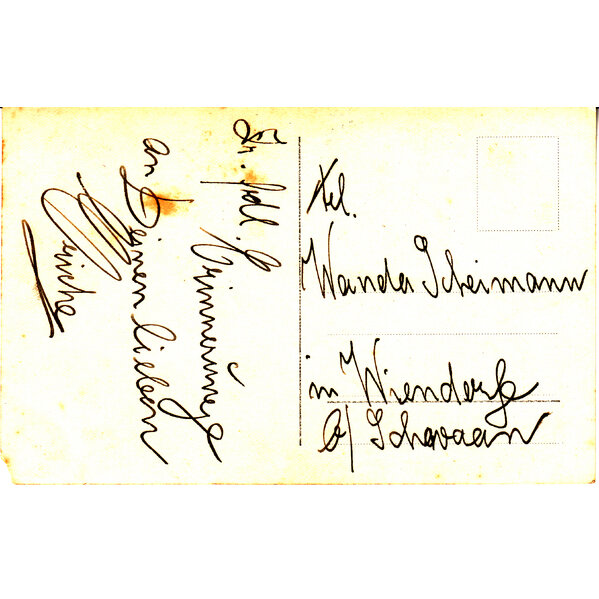 Zr. frdl. Erinnerung
an Deinen lieben
Frl.
Wanda Scheimann
in Wiendorf
b/ Schwaan